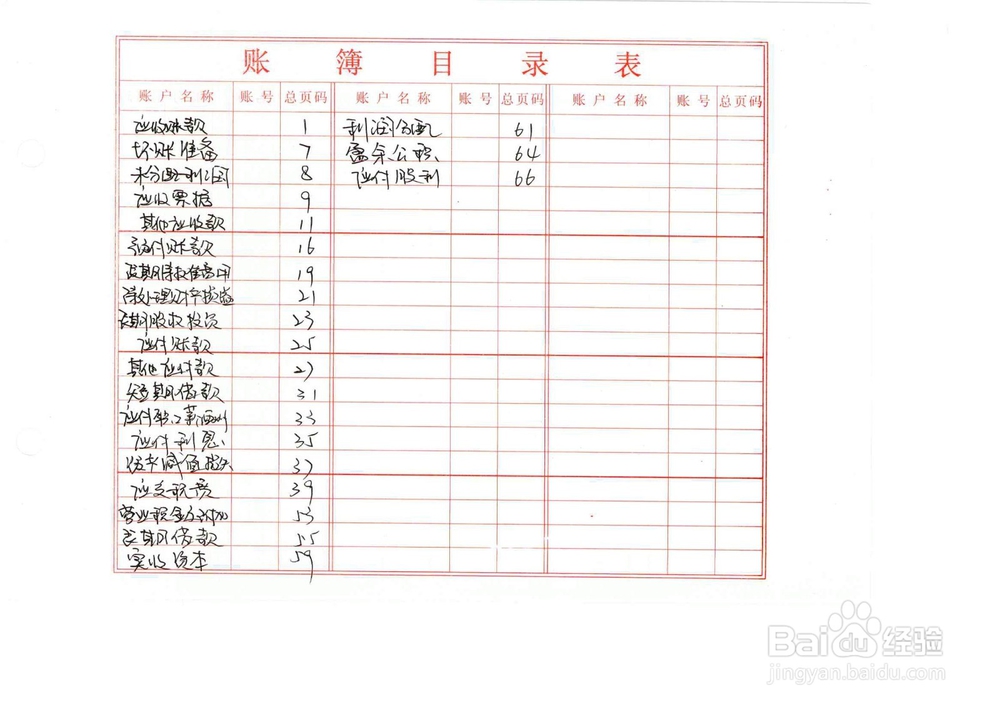 账簿目录表
账户名称 账号 总页码 账户名称 账号 总页码 账户名称 账号 总页码
应收账款 1 利润分配 61
坏账准备 7 盈余公积 64
未分配利润 8 应付股利 66
应收票据 9
其他应收款 11
预付账款 16
长期待摊费用 19
待处理财产损益 21
长期股权投资 23
应付账款 25
其他应付款 27
短期借款 31
应付职工薪酬 33
应付利息 35
资产减值损失 37
应交税费 39
营业税金及附加 53
长期借款 55
实收资本 59
Baidu 经验
jingyan.baidu.com